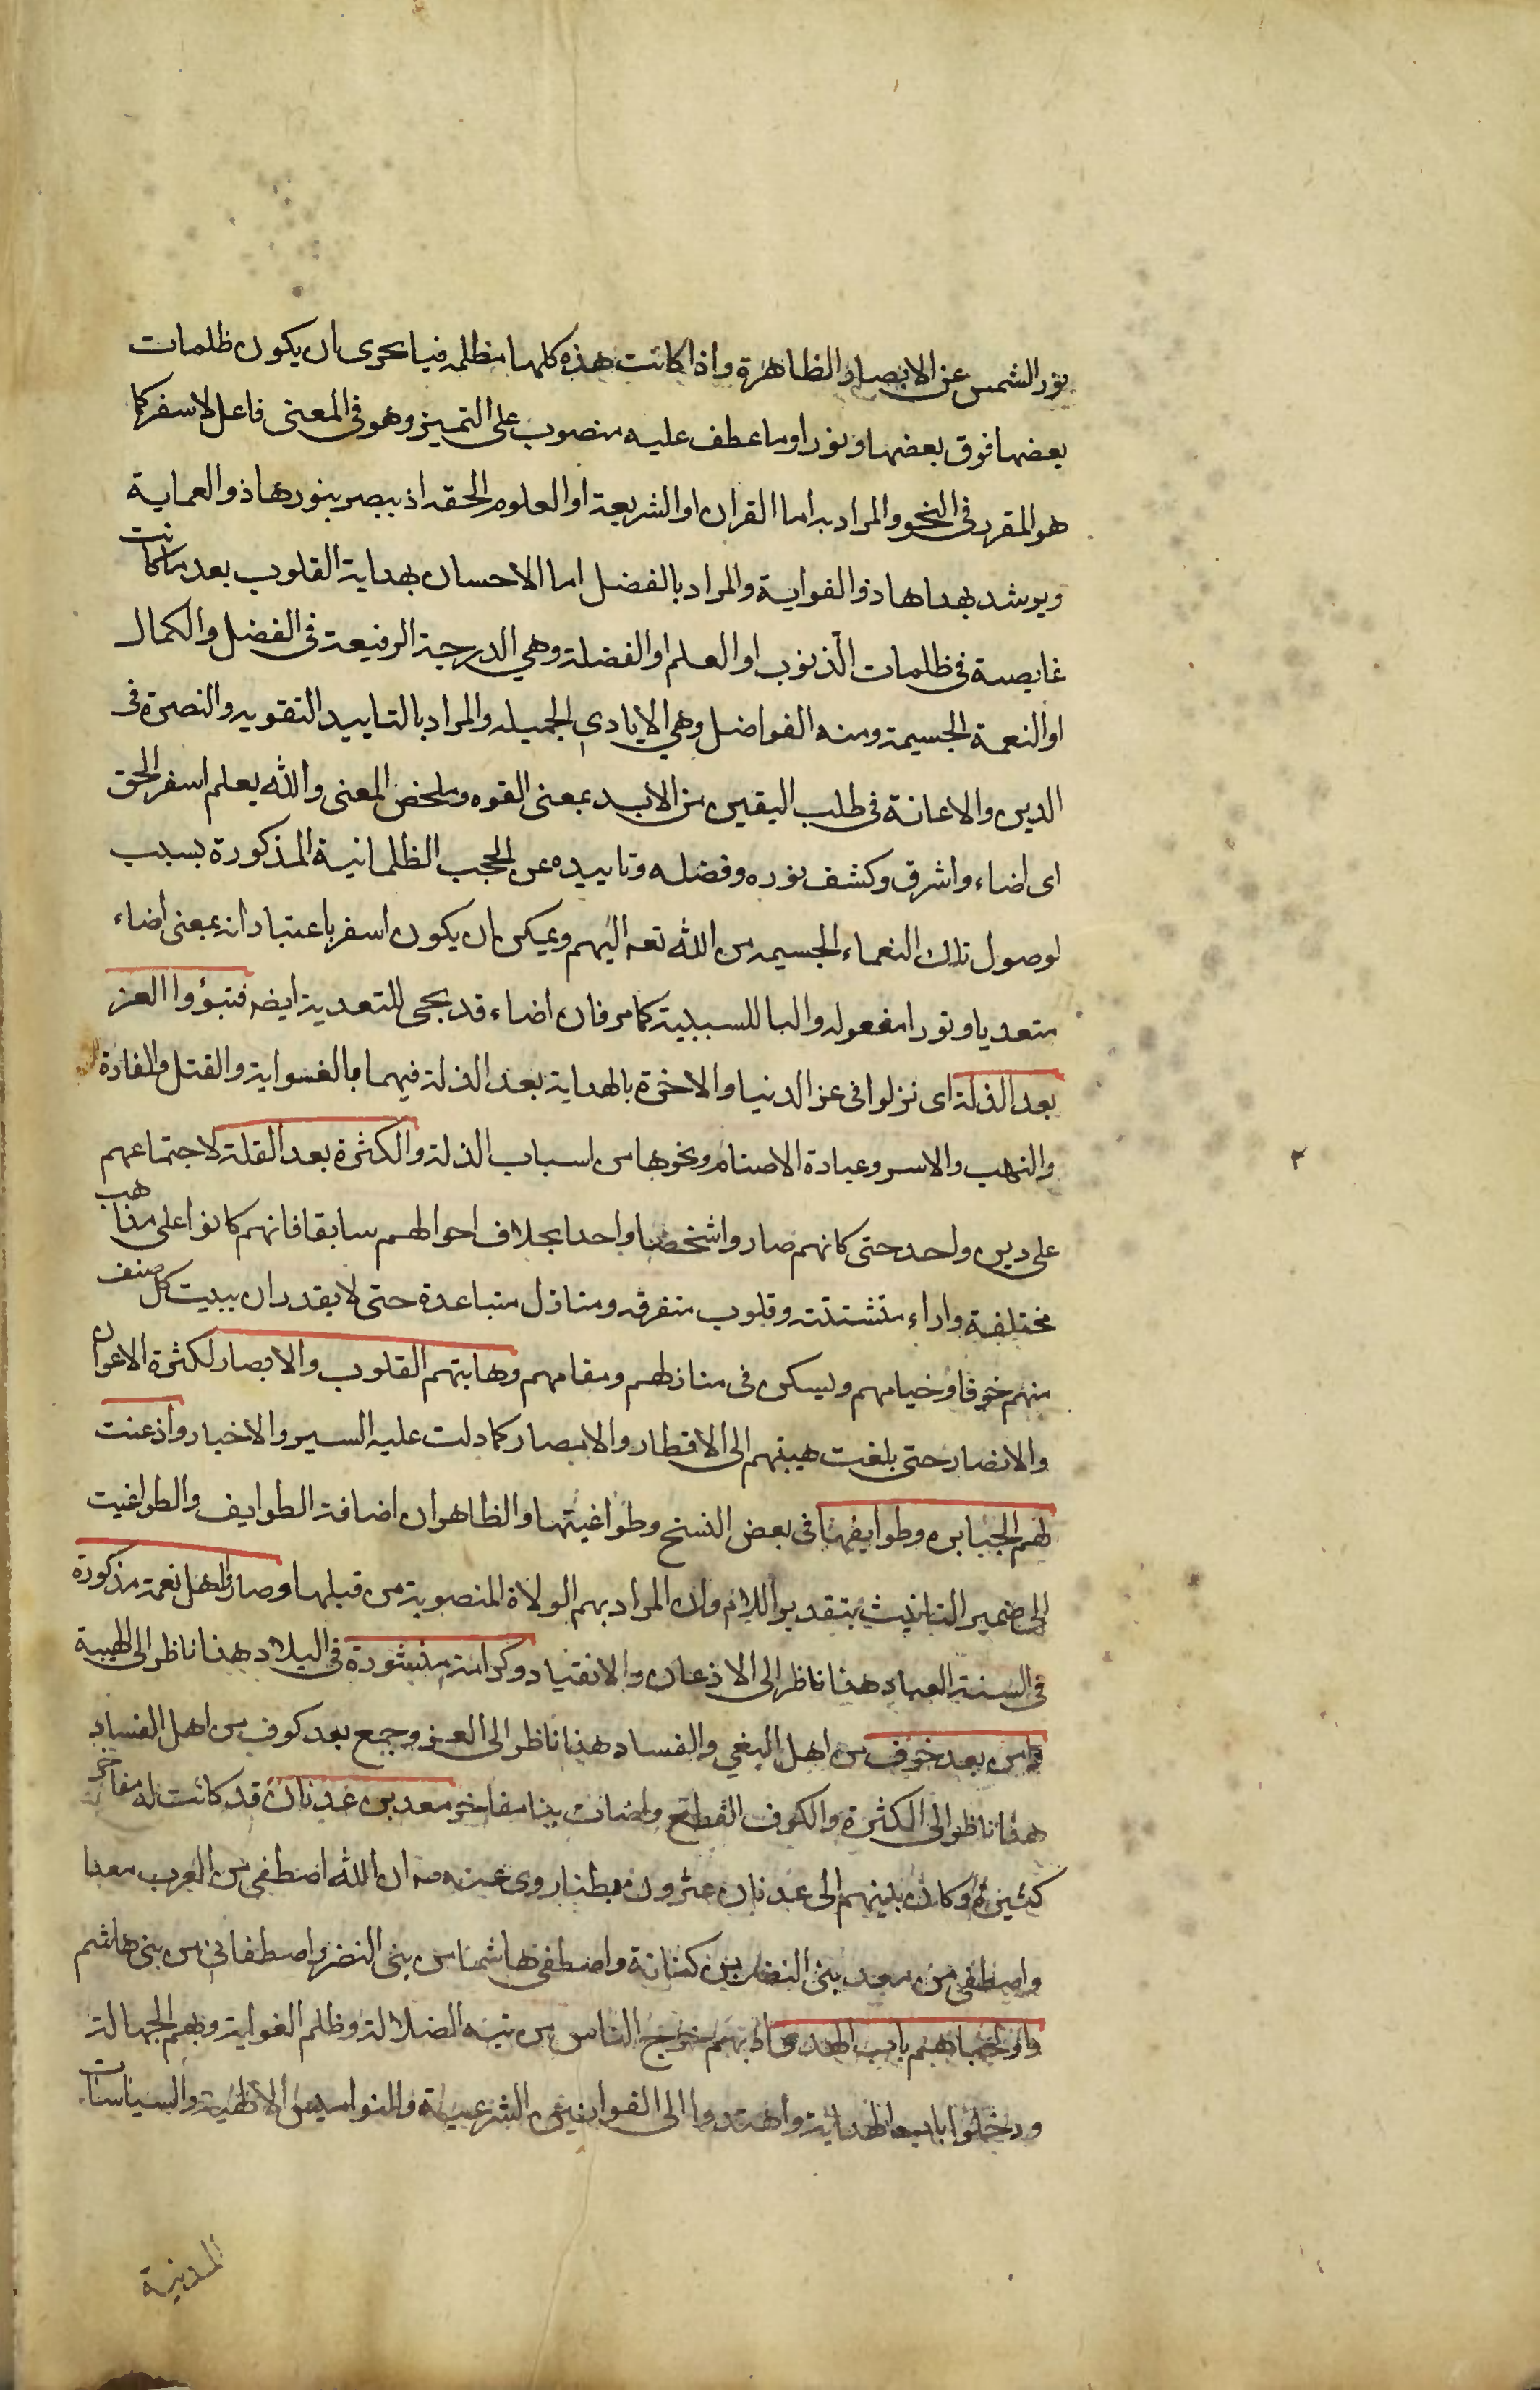 نور الشمس عن الابصار الظاهرة واذا كانت هذه كلها مظلمه فبا بحرى ان يكون ظلمات
بعضها فوق بعضها ونورا وما عطف عليه منصوب على التميز وهو فى المعنى فاعل لاسفر كما
هو المقرر فى النحو والمراد به اما القران او الشريعة او العلوم الحقه اذ يبصر بنورها ذو العماية
ويرشد بهداها ذو الغواية والمراد بالفضل اما الاحسان بهداية القلوب بعد ما كانت
غايصة فى ظلمات الذنوب او العلم او الفضلة وهي الدرجة الرفيعة فى الفضل والكمال
او النعمة الجسيمة ومنه الفواضل وهي الايادى الجميله والمراد بالتاييد التقويه والنصرة فى
الدين والاعانة فى طلب اليقين من الايد بمعنى القوه وملخص المعنى والله يعلم اسفر الحق
اى اضاء واشرق وكشف نوره وفضله وتاييده عن الحجب الظلمانية المذكورة بسبب
لوصول تلك النعماء الجسيمه من الله تعه اليهم ويمكن ان يكون اسفر باعتبار انه بمعنى اضاء
متعديا ونورا مفعوله والبا للسببية كما مر فان اضاء قد يجى للتعدية ايضه فتبوؤا العز
بعد الذلة اى نزلوا فى عز الدنيا والاخرة بالهداية بعد الذلة فيهما بالغواية والقتل والغارة
والنهب والاسر وعبادة الاصنام ونحوها من اسباب الذلة والكثرة بعد القلة لاجتماعهم
على دين واحد حتى كانهم صاروا شخصا واحدا بخلاف احوالهم سابقا فانهم كانوا على مذاهب
مختلفة واراء متشتتة وقلوب متفرقه ومنازل متباعدة حتى لا يقدر ان يبيت كل صنف
منهم خوفا وخيامهم ويسكن فى منازلهم ومقامهم وهابتهم القلوب والابصار لكثرة الاعوان
والانصار حتى بلغت هيبتهم الى الاقطار والامصار كما دلت عليه السير والاخبار واذعنت
لهم الجبابره وطوايفها فى بعض النسخ وطواغيتها والظاهر ان اضافة الطوايف والطواغيت
الى ضمير التانيث بتقدير اللام وان المراد بهم الولاة المنصوبة من قبلها وصاروا اهل نعمة مذكورة
فى السنة العباد هذا ناظر الى الاذعان والانقياد وكرامة منشورة فى البلاد هذا ناظر الى الهيبة
وامن بعد خوف من اهل البغي والفساد هذا ناظر الى العز وجمع بعد كوف من اهل الفساد
هذا ناظر الى الكثرة والكوف القطع واضات بنا مفاخر معد بن عدنان قد كانت له مفاخر
كثيرة وكان بينهم الى عدنان عشرون بطنا روى عنه صه ان الله اصطفى من العرب معدا
واصطفى من معد بنى النضر بن كنانة واصطفى هاشما من بنى النضر واصطفانى من بنى هاشم
واولجناهم باب الهدى اذ بهم خرج الناس من تيه الضلالة وظلم الغواية وبهم الجهالة
ودخلوا باب الهداية واهتدوا الى القوانين الشرعية والنواميس الالهية والسياسات
المدنية
٣